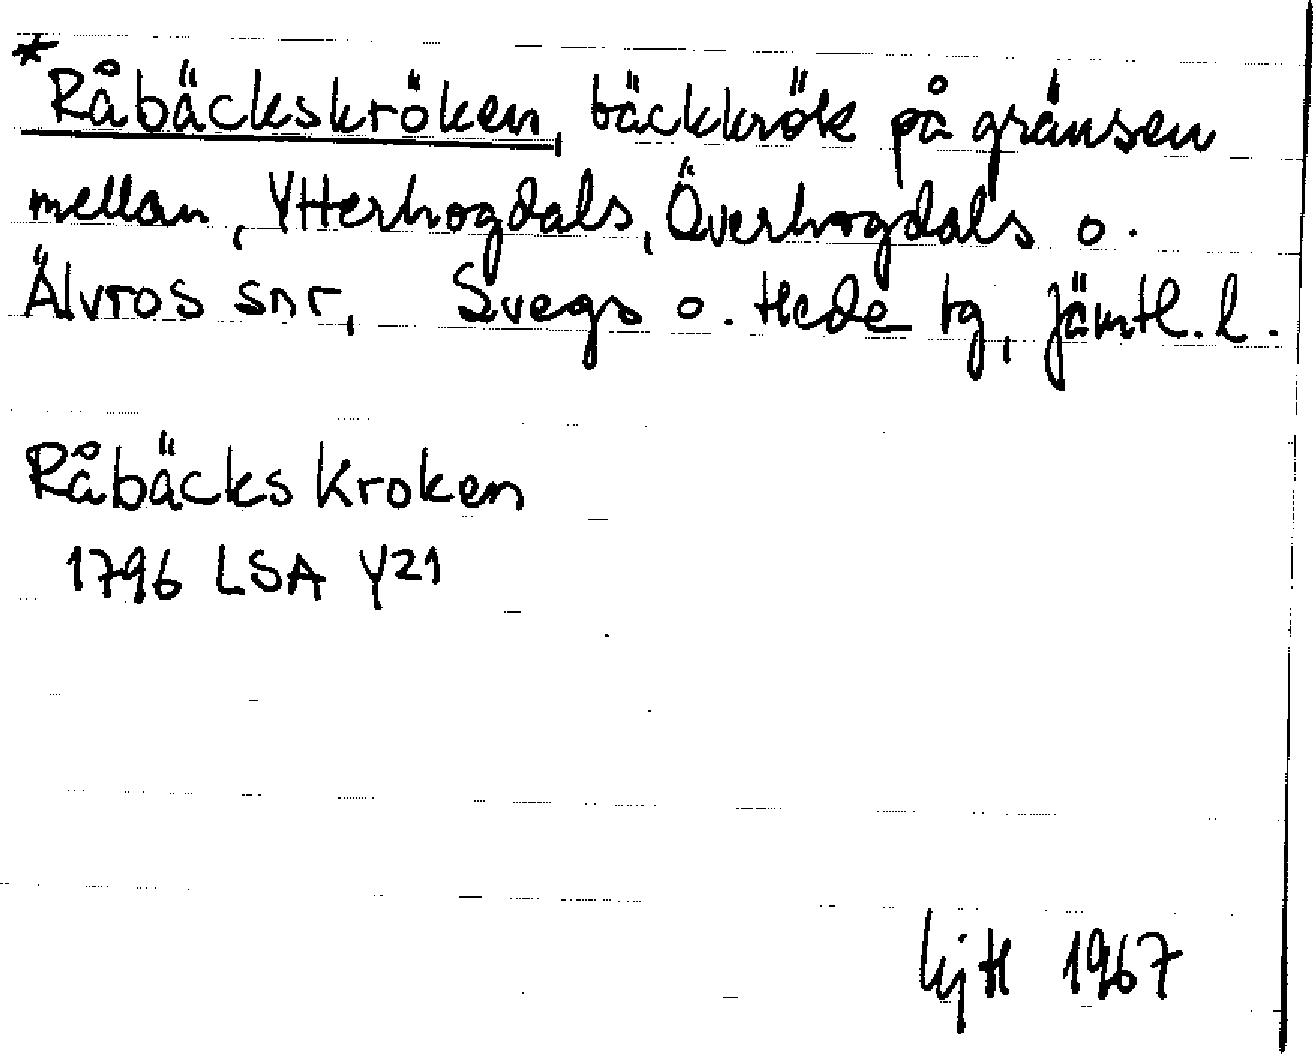 *Råbäckskröken, bäckkrök på gränsen
mellan, Ytterhogdals, Överhogdals o.
Älvros snr, Svegs o. Hede tg, Jämtl. l.
Råbäcks Kroken
1796 LSA Y21
1967